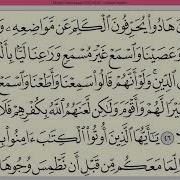 نَ هَادُوا۟ يُحَرِّفُونَ ٱلْكَلِمَ عَن مَّوَاضِعِهِۦ وَ
عَصَيْنَا وَٱسْمَعْ غَيْرَ مُسْمَعٍ وَرَٰعِنَا لَيًّۢا بِأَ
ٱلدِّينِ وَلَوْ أَنَّهُمْ قَالُوا۟ سَمِعْنَا وَأَطَعْنَا وَٱسْمَعْ
يْرًا لَّهُمْ وَأَقْوَمَ وَلَٰكِن لَّعَنَهُمُ ٱللَّهُ بِكُفْرِهِمْ فَلَا
٤٦ يَٰٓأَيُّهَا ٱلَّذِينَ أُوتُوا۟ ٱلْكِتَٰبَ ءَامِنُوا۟ بِ
لِّمَا مَعَكُم مِّن قَبْلِ أَن نَّطْمِسَ وُجُوهًا